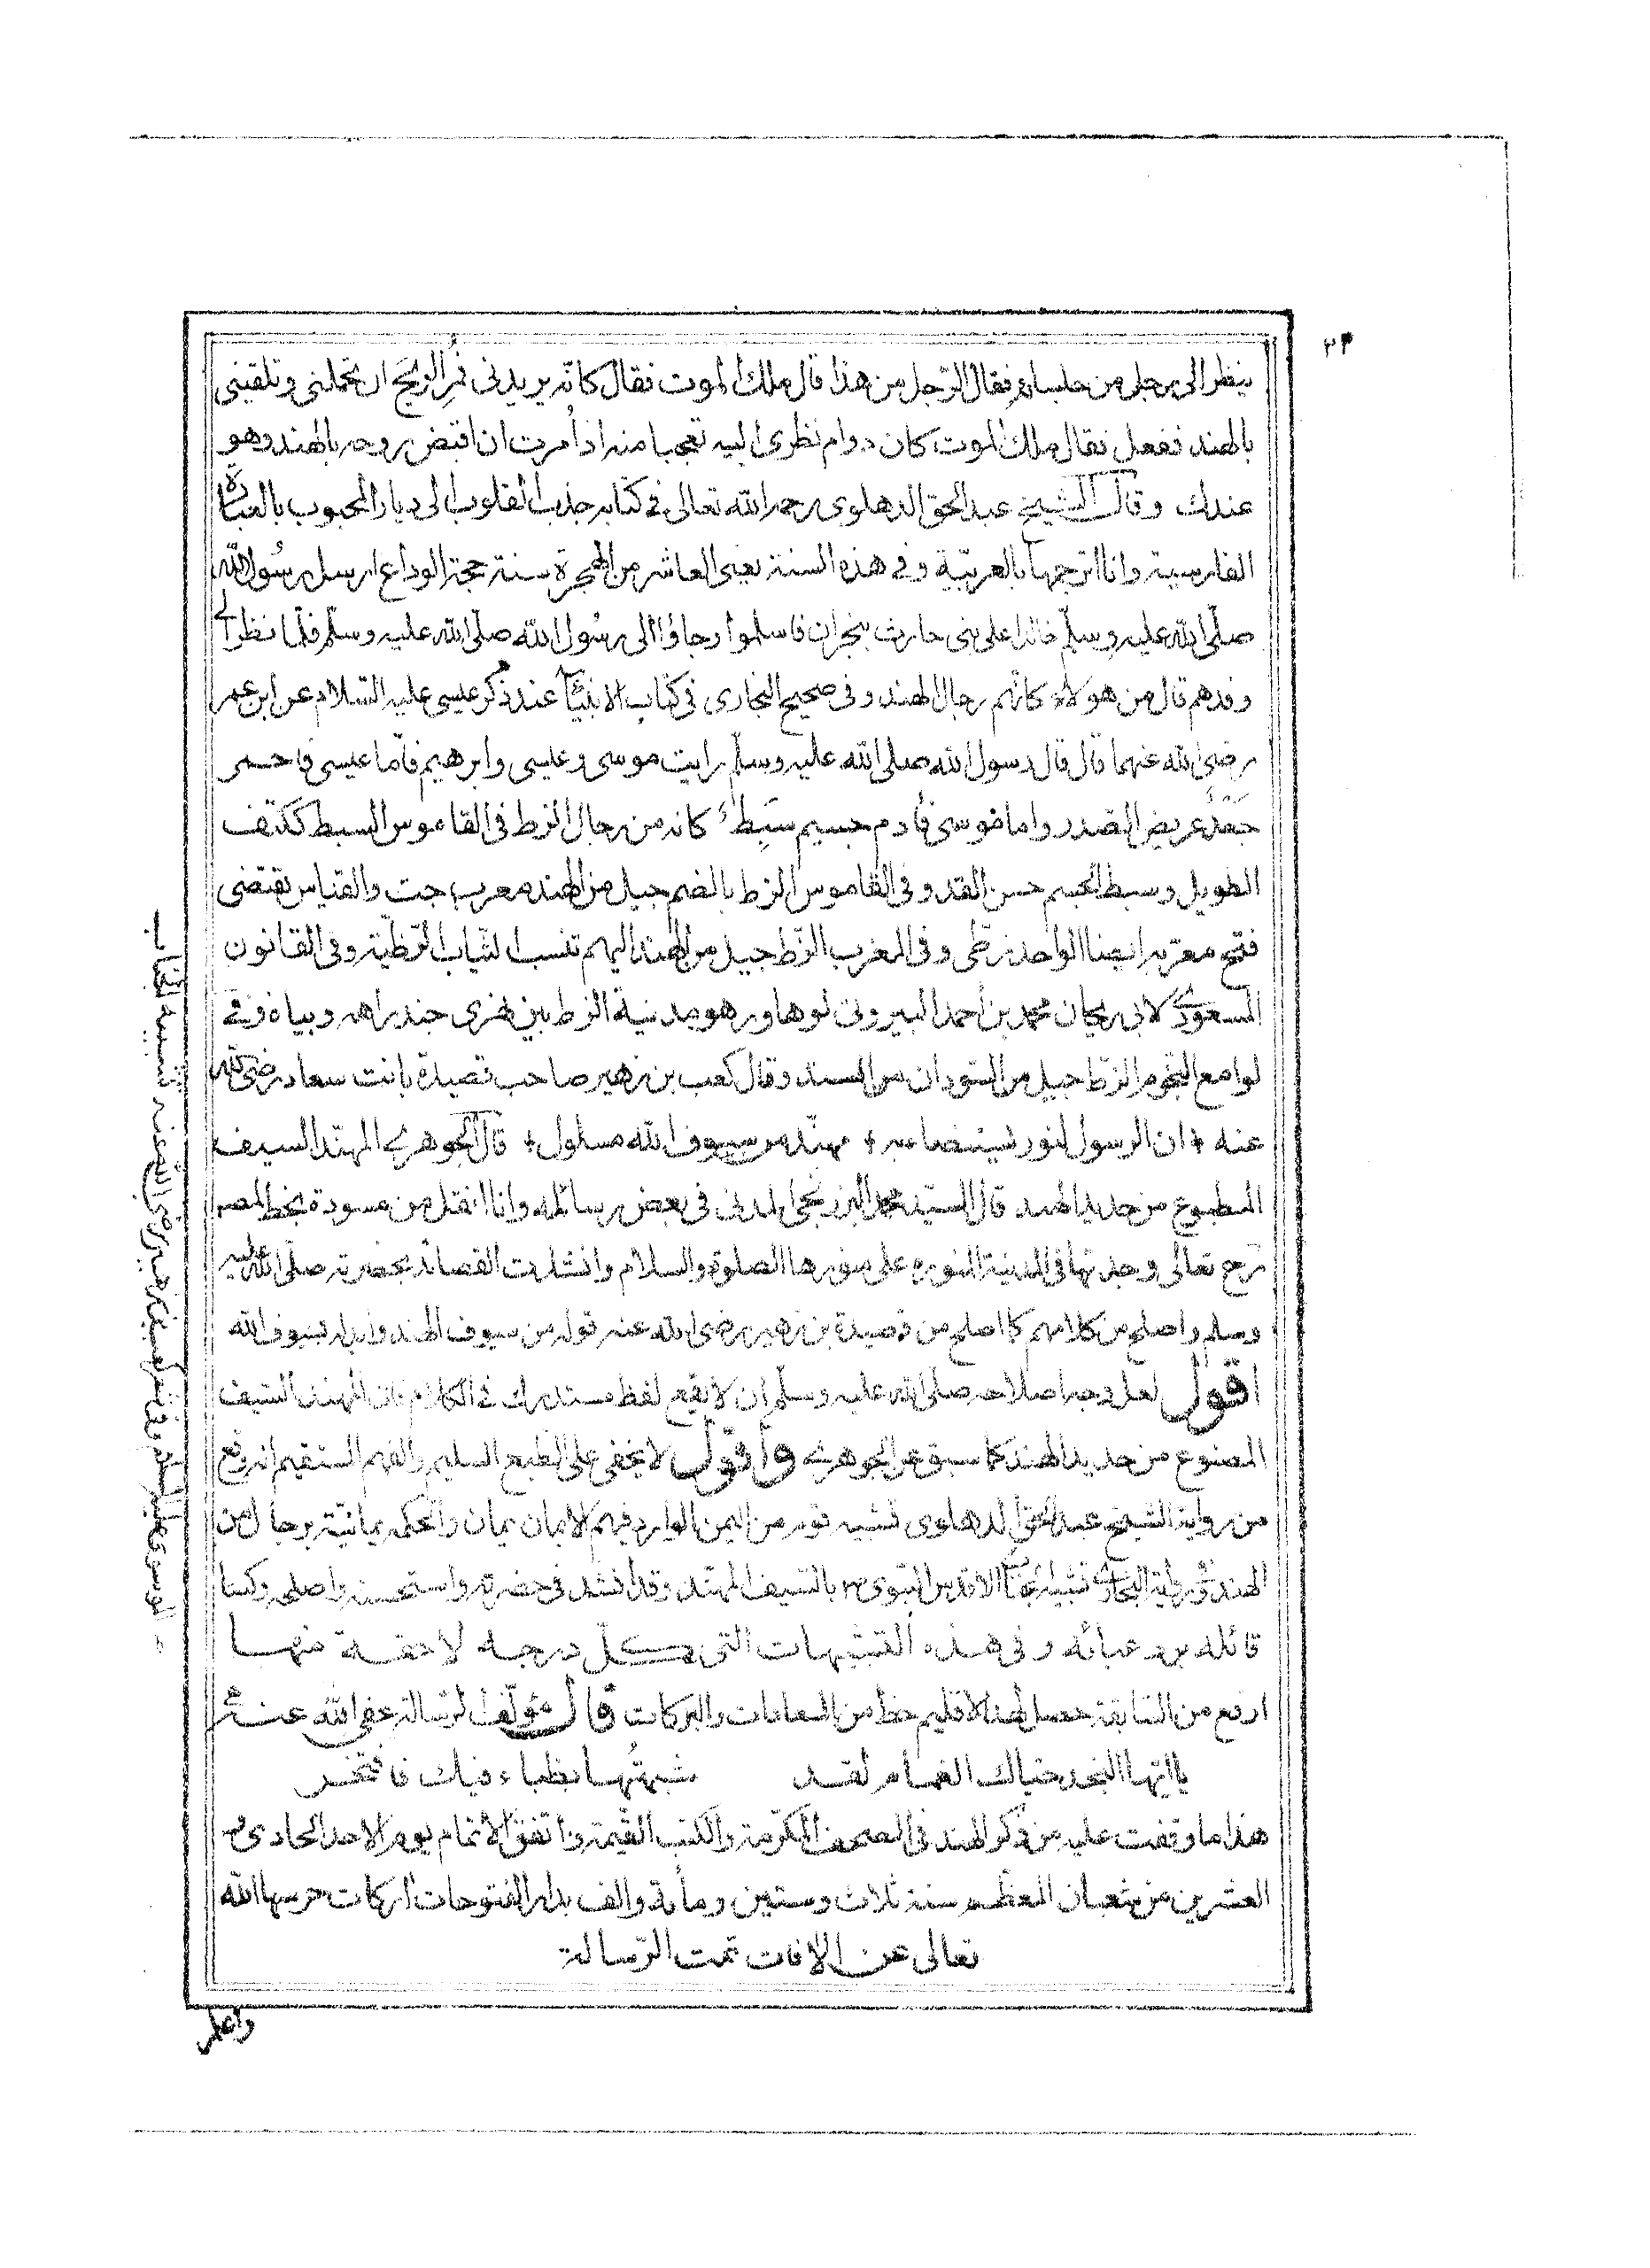 ٢٤
ينظر الى رجل من جلسائه فقال الرّجل من هذا قال ملك الموت فقال كانّه يريدنى فمر الريح ان تحملنى وتلقينى
بالهند ففعل فقال ملك الموت كان دوام نظرى اليه تعجبا منه اذ أُمرت ان اقبض روحه بالهند وهو
عندك وقال الشيخ عبد الحق الدهلوى رحمه الله تعالى فى كتابه جذب القلوب الى ديار المحبوب بالعبارة
الفارسية وانا اترجمها بالعربيّة وفى هذه السنة يعنى العاشر من الهجرة سنة حجة الوداع ارسل رسول الله
صلّى الله عليه وسلّم خالدا على بنى حارث بنجران فاسلموا وجاؤا الى رسُول الله صلّى الله عليه وسلّم فلمّا نظر الى
وفدهم قال من هولاء كانّهم رجال الهند وفى صحيح البخارى فى كتاب الانبيآء عند ذكر عيسى عليه السّلام عن ابن عمر
رضى الله عنهما قال قال رسول الله صلى الله عليه وسلّم رايت موسى وعيسى وابرهيم فامّا عيسى فاحمر
جعد عريض الصدر واما موسى فآدم جسيم سَبِط كانه من رجال الزط فى القاموس السبط ككتف
الطويل وسبط الجسم حسن القد وفى القاموس الزط بالضم جيل من الهند معرب جت والقياس يقتضى
فتح معربه ايضا الواحد زطّى وفى المغرب الزّط جيل من الهند اليهم تنسب الثياب الزّطّية وفى القانون
المسعودى لابى ريحان محمد بن احمد البيرونى لوهاور هو مدينة الزط بين نهرى جندراهه وبياه وفى
لوامع النّجوم الزّط جيل من السّودان من السند وقال كعب بن زهير صاحب قصيدة بانت سعاد رضى الله
عنه ؛ ان الرسول لنور يستضاء به ؛ مهنّد من سيوف الله مسلول ؛ قال الجوهرى المهنّد السيف
المطبوع من حديد الهند قال السيّد محمد البرزنجى المدنى فى بعض رسائله وانا انقل من مسودة بخط المصـ
رح تعالى وجدتها فى المدينة المنوره على منورها الصلوة والسلام وانشدت القصائد بحضرته صلّى الله عليه
وسلم واصلح من كلامهم كما اصلح من قصيدة بن زهير رضى الله عنه قوله من سيوف الهند وابدله بسيوف الله
اقول لعل وجه اصلاحه صلى الله عليه وسلّم ان لا يقع لفظ مستدرك فى الكلام فان المهند السّيف
المصنوع من حديد الهند كما سبق عن الجوهرى واقول لا يخفى على الطبع السليم والفهم المستقيم انه وقع
من رواية الشيخ عبد الحق الدهلوى تشبيه قوم من اليمن الوارد فيهم الايمان يمان والحكمة يمانيّة برجال من
الهند وفى رواية البخارى تشبيه الاقدس النّبوى بالسّيف المهنّد وقد انشد فى حضرته واستحسن واصلح وكسا
قائله برد عبائه وفى هذه التشبيهات التى كل درجه لاحقة منها
ارفع من السّابقة حصل لهذا الاقليم حظ من السعادات والبركات قال مؤلّف الرّسالة عفى الله عنه
يا ايّها النجد حيّاك الغمام لقد شبهتُها بظباء فيك فافتخر
هذا ما وقفت عليه من ذكر الهند فى الصحف المكرّمة والكتب القيّمة واتفق الاتمام يوم الاحد الحادى و
العشرين من شعبان المعظم سنة ثلاث وستين ومأية والف بدار الفتوحات اركات حرسها الله
تعالى عن الافات تمت الرّسالة
واعلم